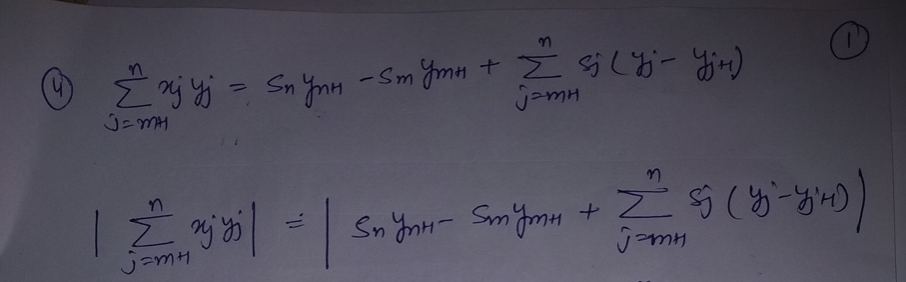 ④ \sum_{j=m+1}^{n} x_j y_j = s_n y_{n+1} - s_m y_{m+1} + \sum_{j=m+1}^{n} s_j (y_j - y_{j+1}) ①
\left| \sum_{j=m+1}^{n} x_j y_j \right| = \left| s_n y_{n+1} - s_m y_{m+1} + \sum_{j=m+1}^{n} s_j (y_j - y_{j+1}) \right|